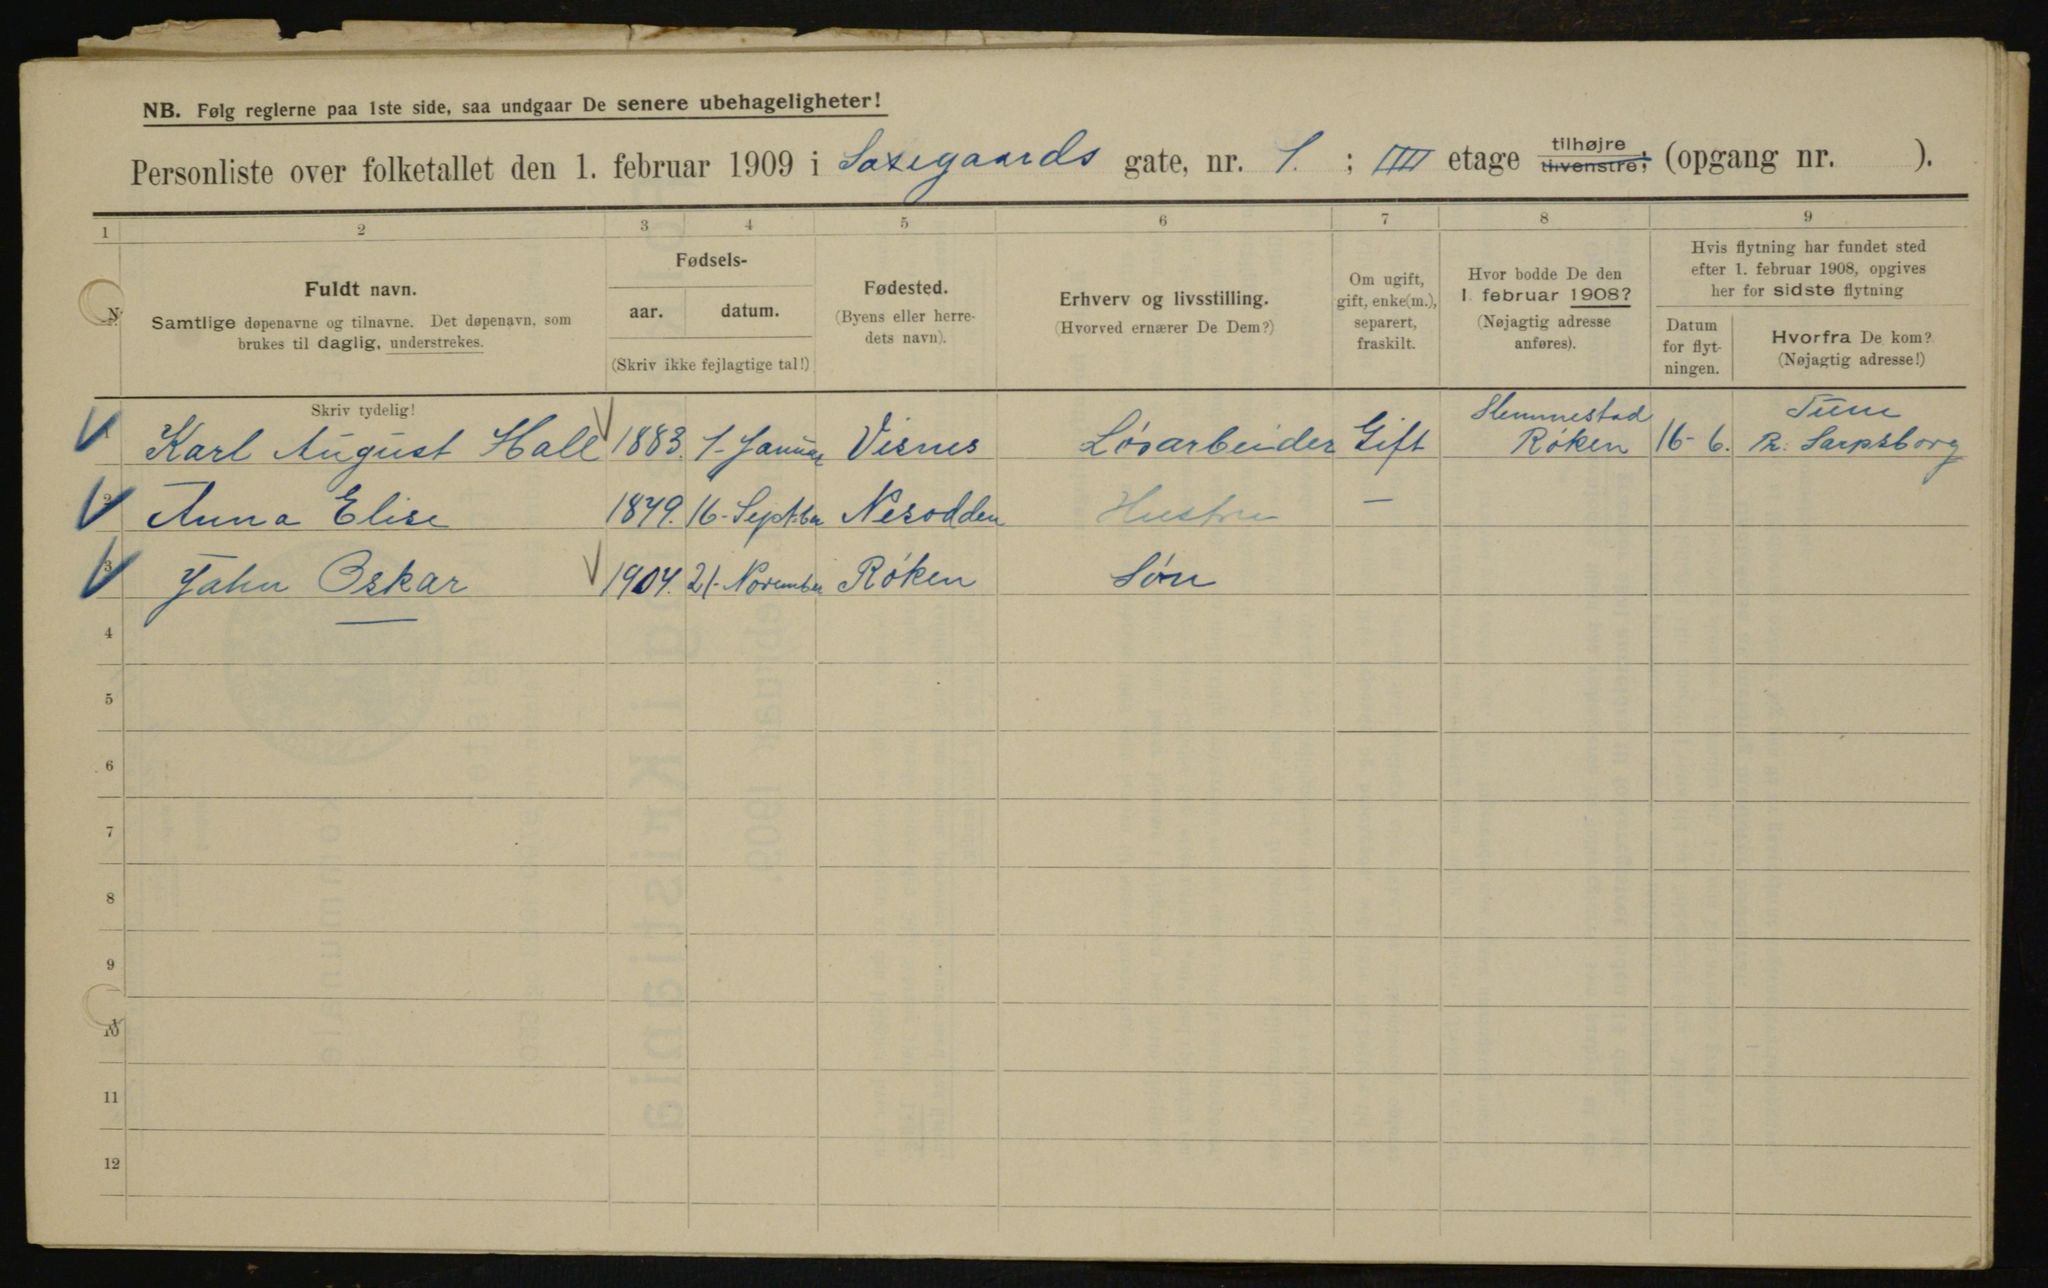 NB. Følg reglerne paa 1ste side, saa undgaar De senere ubehageligheter!
Personliste over folketallet den 1. februar 1909 i Saxegaards gate, nr. 1. ; IIII etage tilhøjre, tilvenstre, (opgang nr. ).
1 2 3 4 5 6 7 8 9
N
Fuldt navn.
Samtlige døpenavne og tilnavne. Det døpenavn, som
brukes til daglig, understrekes.
Fødsels-
aar. datum.
(Skriv ikke fejlagtige tal!)
Fødested.
(Byens eller herre-
dets navn).
Erhverv og livsstilling.
(Hvorved ernærer De Dem?)
Om ugift,
gift, enke(m.),
separert,
fraskilt.
Hvor bodde De den
1. februar 1908?
(Nøjagtig adresse
anføres).
Hvis flytning har fundet sted
efter 1. februar 1908, opgives
her for sidste flytning
Datum
for flyt-
ningen.
Hvorfra De kom?
(Nøjagtig adresse!)
Skriv tydelig!
Karl August Hall 1883. 1- Januar Visnes Løsarbeider Gift Slemmestad Røken 16-6. Tune Pr: Sarpsborg
2 Anna Elise 1879. 16- Septber Nesodden Hustru —
3 Jahn Oskar 1904. 21- November Røken Søn
4
5
6
7
8
9
10
11
12